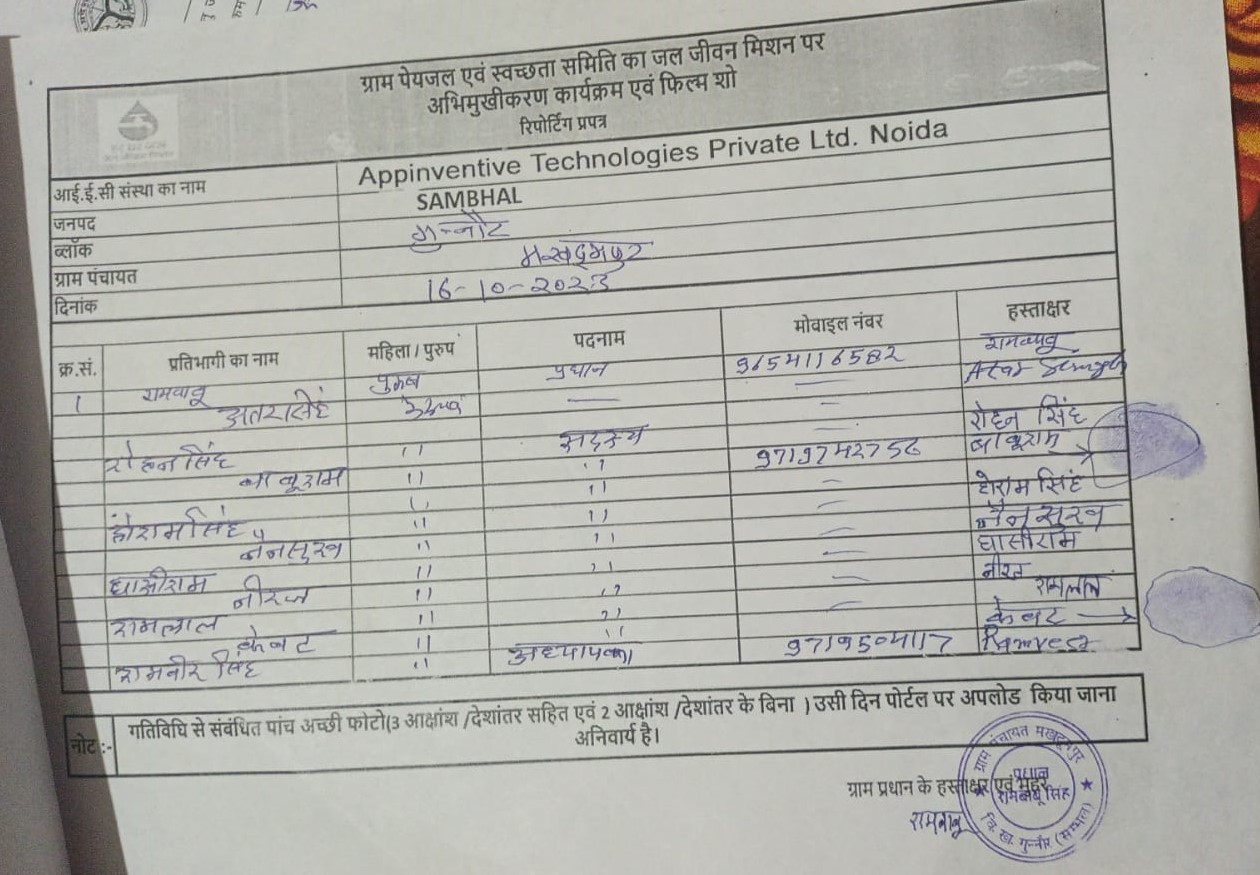 ग्राम पेयजल एवं स्वच्छता समिति का जल जीवन मिशन पर
अभिमुखीकरण कार्यक्रम एवं फिल्म शो
रिपोर्टिंग प्रपत्र
आई.ई.सी संस्था का नाम Appinventive Technologies Private Ltd. Noida
जनपद SAMBHAL
ब्लॉक गुन्नौर
ग्राम पंचायत मखदूमपुर
दिनांक 16-10-2023
क्र.सं. प्रतिभागी का नाम महिला / पुरुष पदनाम मोवाइल नंवर हस्ताक्षर
1 रामबाबू पुरुष प्रधान 9654116582 रामबाबू
अतरसिंह — — Atar Singh
रोहन सिंह " सदस्य — रोहन सिंह
बाबूराम " " 9719742756 बाबूराम
होराम सिंह " " — होराम सिंह
नैनसुख " " — नैनसुख
घासीराम " " — घासीराम
नीरज " " — नीरज
रामलाल " " — रामलाल
केवट " " — केवट
रामवीर सिंह " अध्यापक 9719504117
नोट :- गतिविधि से संबंधित पांच अच्छी फोटो(3 आक्षांश /देशांतर सहित एवं 2 आक्षांश /देशांतर के बिना ) उसी दिन पोर्टल पर अपलोड किया जाना
अनिवार्य है।
ग्राम प्रधान के हस्ताक्षर एवं मुहर
रामबाबू
ग्राम पंचायत मखदूमपुर
प्रधान
रामबाबू सिंह
वि. ख. गुन्नौर (सम्भल)